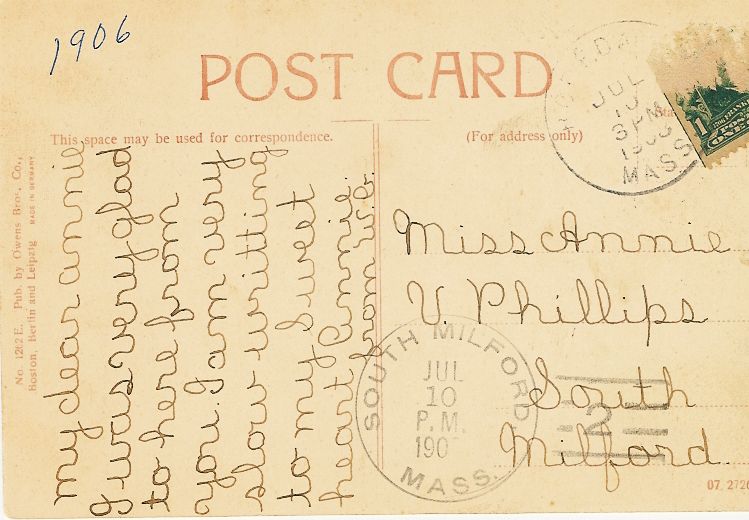 1906
POST CARD
This space may be used for correspondence.
(For address only)
JUL
10
3 PM
MASS
1
No. 1262 E. Pub. by Owens Bros. Co.,
Boston, Berlin and Leipzig MADE IN GERMANY
my dear annie
I was very glad
to here from
you. I am very
slow writting
to my sweet
heart Annie.
from W.C.
Miss Annie
V Phillips
South
Milford.
SOUTH MILFORD
JUL
10
P.M.
MASS.
2